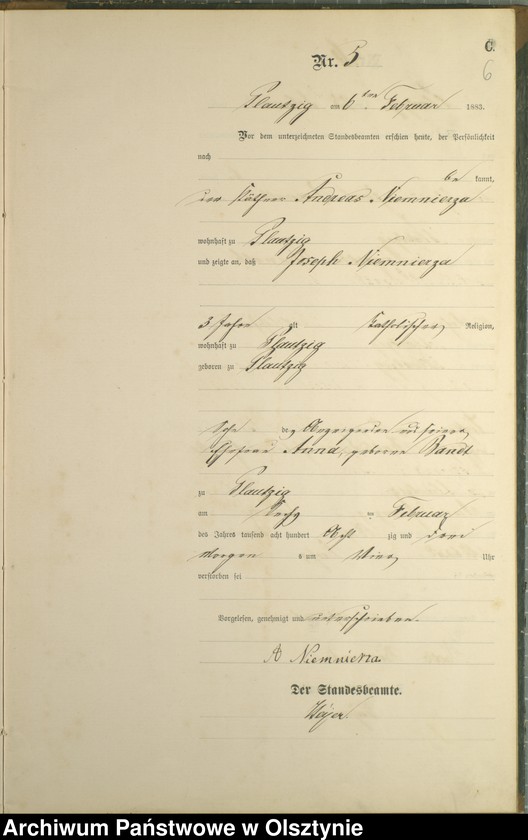 C.
6
Nr. 5
Plautzig am 6ten Februar 1883.
Vor dem unterzeichneten Standesbeamten erschien heute, der Persönlichkeit
nach
be kannt,
der Käthner Andreas Niemnierza
wohnhaft zu Plautzig
und zeigte an, daß Joseph Niemnierza
3 Jahre alt katholischer Religion,
wohnhaft zu Plautzig
geboren zu Plautzig
Sohn des Anzeigenden und seiner
Ehefrau Anna, geborne Bandt
zu Plautzig
am Februar
des Jahres tausend acht hundert Acht zig und drei
Morgens um Uhr
verstorben sei
Vorgelesen, genehmigt und unterschrieben.
A Niemnierza.
Der Standesbeamte.
Archiwum Państwowe w Olsztynie